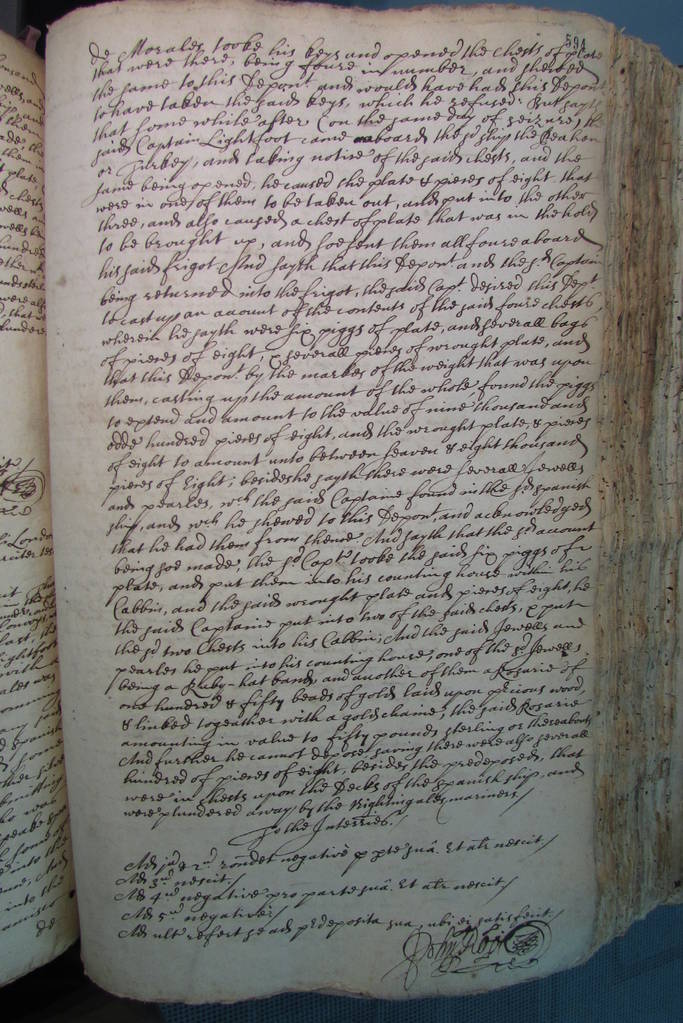 594
de Morales tooke his keys and opened the chests of plate
that were there, being foure in number, and shewed
the same to this depont and would have had this depont
to have taken the said keys, which he refused. But sayth
that some while after (on the same day of seizure) the
said Captain Lightfoot came aboard the sd ship the Sea hen
or Turkey, and taking notice of the said chests, and the
same being opened, he caused the plate & pieces of eight that
were in one of them to be taken out, and put into the other
three, and also caused a chest of plate that was in the hold
to be brought up, and soe sent them all foure aboard
his said frigot And sayth that this depont and the sd Captain
being returned into the frigot, the said Capt. desired this dept
to cast up an account of the contents of the said foure chests
wherein he sayth were six piggs of plate, and severall bags
of pieces of eight, & severall pieces of wrought plate, and
that this depont by the markes of the weight that was upon
them, casting up the amount of the whole, found the piggs
to extend and amount to the value of nine thousand and
odde hundred pieces of eight, and the wrought plate, & pieces
of eight to amount unto between seaven & eight thousand
pieces of Eight; besides he sayth there were severall Jewells
and pearles, wch the said Captaine found in the sd Spanish
ship, and wch he shewed to this Depont and acknowledged
that he had them from thence. And sayth that the sd account
being soe made, the sd Capt. tooke the said six piggs of
plate, and put them into his counting house within his
Cabbin, and the said wrought plate and pieces of eight, he
the said Captaine put into two of the said chests, & put
the sd two chests into his Cabbin; And the said Jewells and
pearles he put into his counting house, one of the sd Jewells
being a Ruby-hat band, and another of them a Rosarie of
one hundred & fifty beads of gold laid upon pretious wood,
& linked togeather with a gold chaine, the said Rosarie
amounting in value to fifty pounds sterling or thereabouts
And further he cannot depose saving there were also severall
hundred of pieces of eight, besides the predeposed, that
were in chests upon the Decks of the Spanish ship, and
were plundered away by the Nightingales mariners./
To the Interries./
Ad jum & 2d rondet negative p pte sua. Et alr nescit./
Ad 3um nescit./
Ad 4um negative pro parte sua. Et alr nescit./
Ad 5um negative./
Ad ult refert se ad predeposita sua, ubi ei satisfecit./